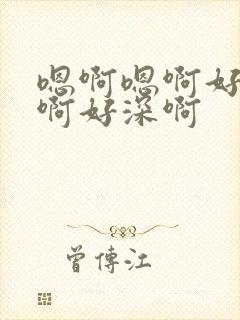 嗯啊嗯啊好
啊好深啊
曾傳江